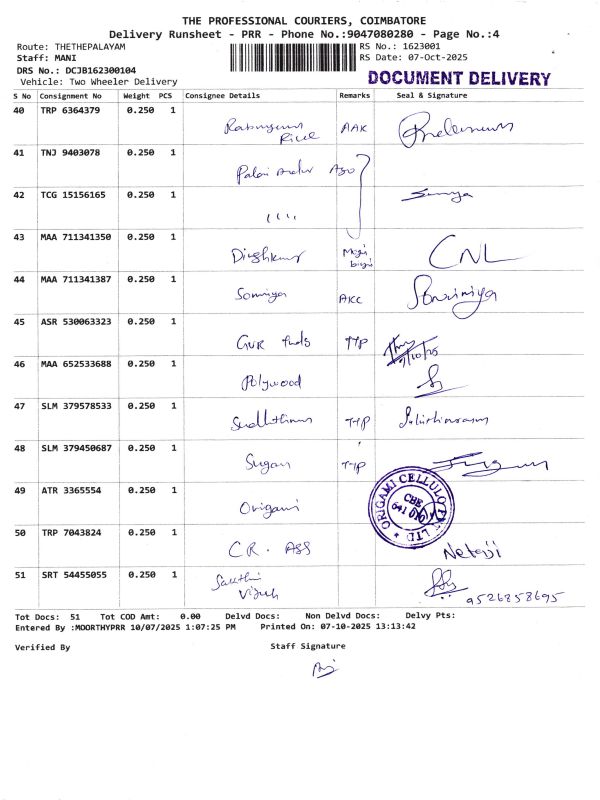 THE PROFESSIONAL COURIERS, COIMBATORE
Delivery Runsheet - PRR - Phone No.:9047080280 - Page No.:4
Route: THETHEPALAYAM
RS No.: 1623001
Staff: MANI
RS Date: 07-Oct-2025
DRS No.: DCJB162300104
Vehicle: Two Wheeler Delivery
DOCUMENT DELIVERY
S No Consignment No Weight PCS Consignee Details Remarks Seal & Signature
40 TRP 6364379 0.250 1
AAK
41 TNJ 9403078 0.250 1
42 TCG 15156165 0.250 1
Surya
43 MAA 711341350 0.250 1
CNL
44 MAA 711341387 0.250 1
Sowmiya AKC
45 ASR 530063323 0.250 1
GVR TTP
46 MAA 652533688 0.250 1
Polywood
47 SLM 379578533 0.250 1
TTP
48 SLM 379450687 0.250 1
Sugan TTP
49 ATR 3365554 0.250 1
Origami
ORIGAMI CELLULO PVT LTD
CBE
641 010
50 TRP 7043824 0.250 1
CR. ASS
Netaji
51 SRT 54455055 0.250 1
Sakthi
Vignesh
9526858695
Tot Docs: 51 Tot COD Amt: 0.00 Delvd Docs: Non Delvd Docs: Delvy Pts:
Entered By :MOORTHYPRR 10/07/2025 1:07:25 PM Printed On: 07-10-2025 13:13:42
Verified By Staff Signature